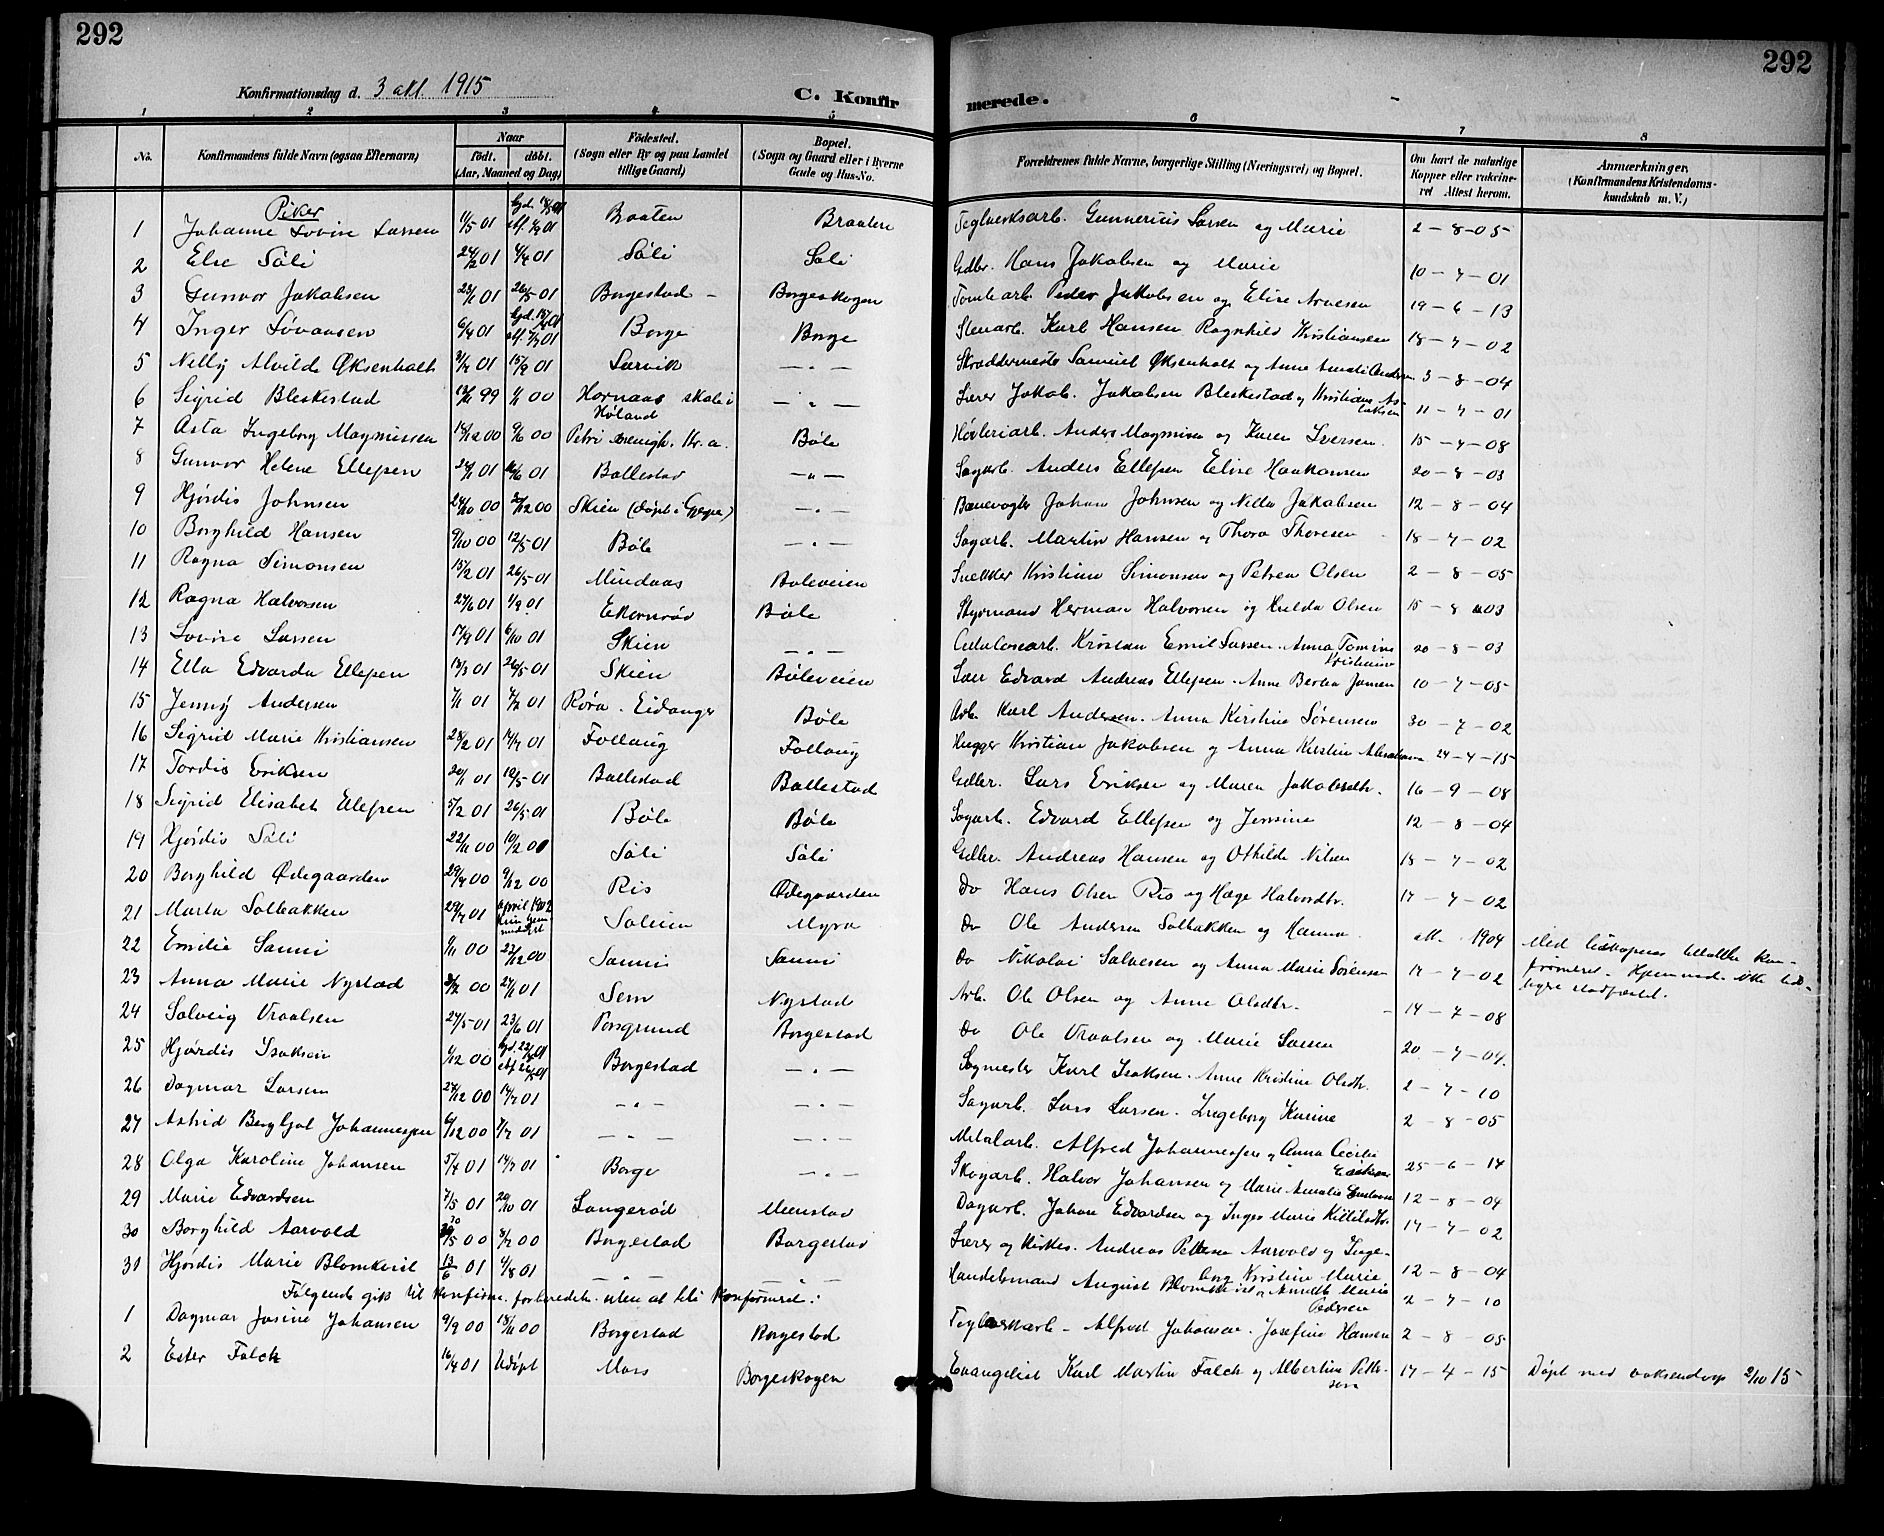 292
292
Konfirmationsdag d. 3 okt. 1915
C. Konfirmerede.
1 2 3 4 5 6 7 8
No. Konfirmandens fulde Navn (ogsaa Efternavn) Naar født. døbt. (Aar, Maaned og Dag) Fødested. (Sogn eller By og paa Landet tillige Gaard) Bopæl. (Sogn og Gaard eller i Byerne Gade og Hus-No. Forældrenes fulde Navne, borgerlige Stilling (Næringsvei) og Bopæl. Om havt de naturlige Kopper eller vakcineret Attest herom. Anmærkninger. (Konfirmandens Kristendomskundskab m. V.)
Piker
1 Johanne Lovise Larsen 11/5 01 Braaten Teglverksarb. Gunnerius Larsen og Marie 2-8-05
2 Else Søli 01 4/4 01 Søli Søli Gdbr. Hans Jakobsen og Marie 10-7-01
3 Gunvor Jakobsen 23/1 01 26/5 01 Borgestad Borgeskogen Tomtearb. Peder Jakobsen og Elise Arnesen 19-6-13
4 Inger 6/4 01 Borge Borge Stenarb. Karl Hansen Ragnhild Kristiansen 18-7-02
5 Nelly Alvilde Øksenholt 01 15/9 01 Larvik —"— Skreddermester Samuel Øksenholt og Anne Amalie Andersen 3-8-04
6 Sigrid Bleskestad 99 1/1 00 Hornaas skole i Høland —"— Lærer Jakob Jakobsen Bleskestad og Kristiane 11-7-01
7 Asta Ingeborg Magnussen 18/12 00 9/6 00 Petri menigh. Kr.a. Bøle Høvleriarb. Anders Magnusen og Karen Iversen 15-7-08
8 Gunvor Helene Ellefsen 24/1 01 16/6 01 Ballestad —"— Sagarb. Anders Ellefsen Elise Haakonsen 20-8-03
9 Hjørdis Johnsen 24/10 00 00 Skien (døpt i Gjerpen) —"— Banevogter Johan Johnsen og Nella Jakobsen 12-8-04
10 Borghild Hansen 9/10 00 12/5 01 Bøle —"— Sagarb. Martin Hansen og Thora Thoresen 18-7-02
11 Ragna Simonsen 15/2 01 26/5 01 Mindaas Bøleveien Snekker Kristian Simonsen og Petrea Olsen 2-8-05
12 Ragna Halvorsen 24/6 01 1/9 01 Ekornrød Bøle Styrmand Herman Halvorsen og Hulda Olsen 15-8-03
13 Lovise Larsen 17/9 01 6/10 01 Skien —"— Celulosearb. Kristian Emil Larsen. Anna Tomine Kristiansen 20-8-03
14 Ella Edvarda Ellefsen 13/3 01 26/5 01 Skien Bøleveien Edvard Andreas Ellefsen. Anne Bertea Jansen 10-7-05
15 Jenny Andersen 7/1 01 01 Røra. Eidanger Bøle Arb. Karl Andersen. Anna Kirstine Sørensen 30-7-02
16 Sigrid Marie Kristiansen 28/2 01 14/7 01 Follaug Follaug Hugger Kristian Jakobsen og Anna Kirstine 24-4-15
17 Tordis Eriksen 20/1 01 12/5 01 Ballestad Ballestad Gdbr. Lars Eriksen og Maren Jakobsdtr. 16-9-08
18 Sigrid Elisabet Ellefsen 5/2 01 26/5 01 Bøle Bøle Sagarb. Edvard Ellefsen og Jensine 12-8-04
19 Hjørdis Søli 22/11 00 10/2 00 Søli Søli Gdbr. Andreas Hansen og Othilde Nilsen 18-7-02
20 Borghild Ødegaarden 29/4 00 9/12 00 Ris Ødegaarden Do Hans Olsen Ris og Hæge Halvordtr. 17-7-02
21 Marta Solbakken 29/7 01 april 1902 Myra Do Ole Andersen Solbakken og Hanna okt. 1904 Med biskopens tilladelse konfirmeret. Hjemmed. ikke
22 Emilie Sanni 1/11 00 23/12 00 Sanni Sanni Do Nikolai Salvesen og Anna Marie Sørensen 17-7-02
23 Anna Marie Nystad 00 27/1 01 Sem Nystad Arb. Ole Olsen og Anne Olsdtr. 14-7-08
24 Solveig Vraalsen 24/5 01 23/6 01 Porsgrund Borgestad Do Ole Vraalsen og Marie Larsen 20-7-04
25 Hjørdis Isaksen 1/12 00 Borgestad —"— Sagmester Karl Isaksen. Anne Kristine Olsdtr. 2-7-10
26 Dagmar Larsen 24/12 00 14/7 01 —"— —"— Sagarb. Lars Larsen. Ingeborg Karine 2-8-05
27 Astrid Bergljot Johannessen 6/12 00 7/7 01 —"— —"— Metalarb. Alfred Johannessen og Anna Cecilie 25-6-14
28 Olga Karoline Johansen 5/4 01 14/7 01 Borge —"— Skogarb. Halvor Johansen og Marie Amalie 12-8-04
29 Marie Edvardsen 7/5 01 20/10 01 Langerød Menstad Dagarb. Johan Edvardsen og Inger Marie Kittilsdtr. 17-7-02
30 Borghild Aarvold 00 8/7 00 Borgestad Borgestad Lærer og kirkes. Andreas Pettersen Aarvold og Ingeborg Kristine Marie 12-8-04
31 Hjørdis Marie Blomkvist 13/6 01 4/8 01 —"— —"— Handelsmand August Blomkvist og Annette Marie Pedersen 2-7-10
Følgende gik til konfirm. forberedelse uten at bli konfirmert:
1 Dagmar Josine Johansen 9/9 00 18/11 00 Borgestad Borgestad Alfred Johansen. Josefine Hansen 2-8-05
2 Ester Falck 16/4 01 Udøpt Moss Borgeskogen Evangelist Karl Martin Falck og Albertine Pettersen 17-4-15 Døpt med voksendaap 2/10 15